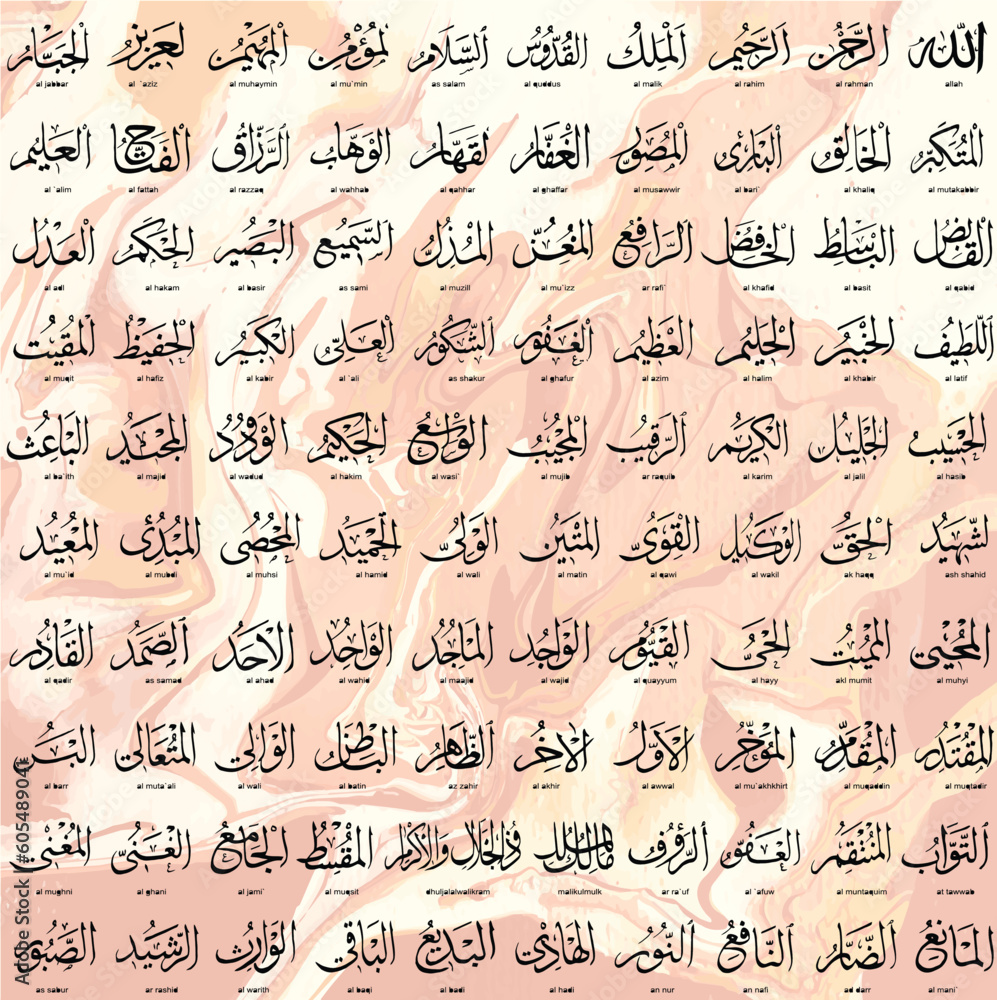 الله الرحمن الرحيم الملك القدوس السلام المؤمن المهيمن العزيز الجبار
al jabbar al `aziz al muhaymin al mu`min as salam al quddus al malik al rahim al rahman allah
المتكبر الخالق البارئ المصور الغفار القهار الوهاب الرزاق الفتاح العليم
al `alim al fattah al razzaq al wahhab al qahhar al ghaffar al musawwir al bari` al khaliq al mutakabbir
القابض الباسط الخافض الرافع المعز المذل السميع البصير الحكم العدل
al adl al hakam al basir as sami al muzill al mu`izz ar rafi` al khafid al basit al qabid
اللطيف الخبير الحليم العظيم الغفور الشكور العلي الكبير الحفيظ المقيت
al muqit al hafiz al kabir al `ali as shakur al ghafur al azim al halim al khabir al latif
الحسيب الجليل الكريم الرقيب المجيب الواسع الحكيم الودود المجيد الباعث
al ba`ith al majid al wadud al hakim al wasi` al mujib ar raquib al karim al jalil al hasib
الشهيد الحق الوكيل القوي المتين الولي الحميد المحصي المبدئ المعيد
al mu`id al mubdi al muhsi al hamid al wali al matin al qawi al wakil ak haqq ash shahid
المحيي المميت الحي القيوم الواجد الماجد الواحد الاحد الصمد القادر
al qadir as samad al ahad al wahid al maajid al wajid al quayyum al hayy akl mumit al muhyi
المقتدر المقدم المؤخر الأول الآخر الظاهر الباطن الوالي المتعالي البر
al barr al muta`ali al wali al batin az zahir al akhir al awwal al mu`akhkhirt al muqaddin al muqtadir
التواب المنتقم العفو الرؤوف مالك الملك ذو الجلال والاكرام المقسط الجامع الغني المغني
al mughni al ghani al jami` al muqsit dhuljalalwalikram malikulmulk ar ra`uf al `afuw al muntaquim at tawwab
المانع الضار النافع النور الهادي البديع الباقي الوارث الرشيد الصبور
as sabur ar rashid al warith al baqi al badi al hadi an nur an nafi ad darr al mani`
Adobe Stock | #605489041